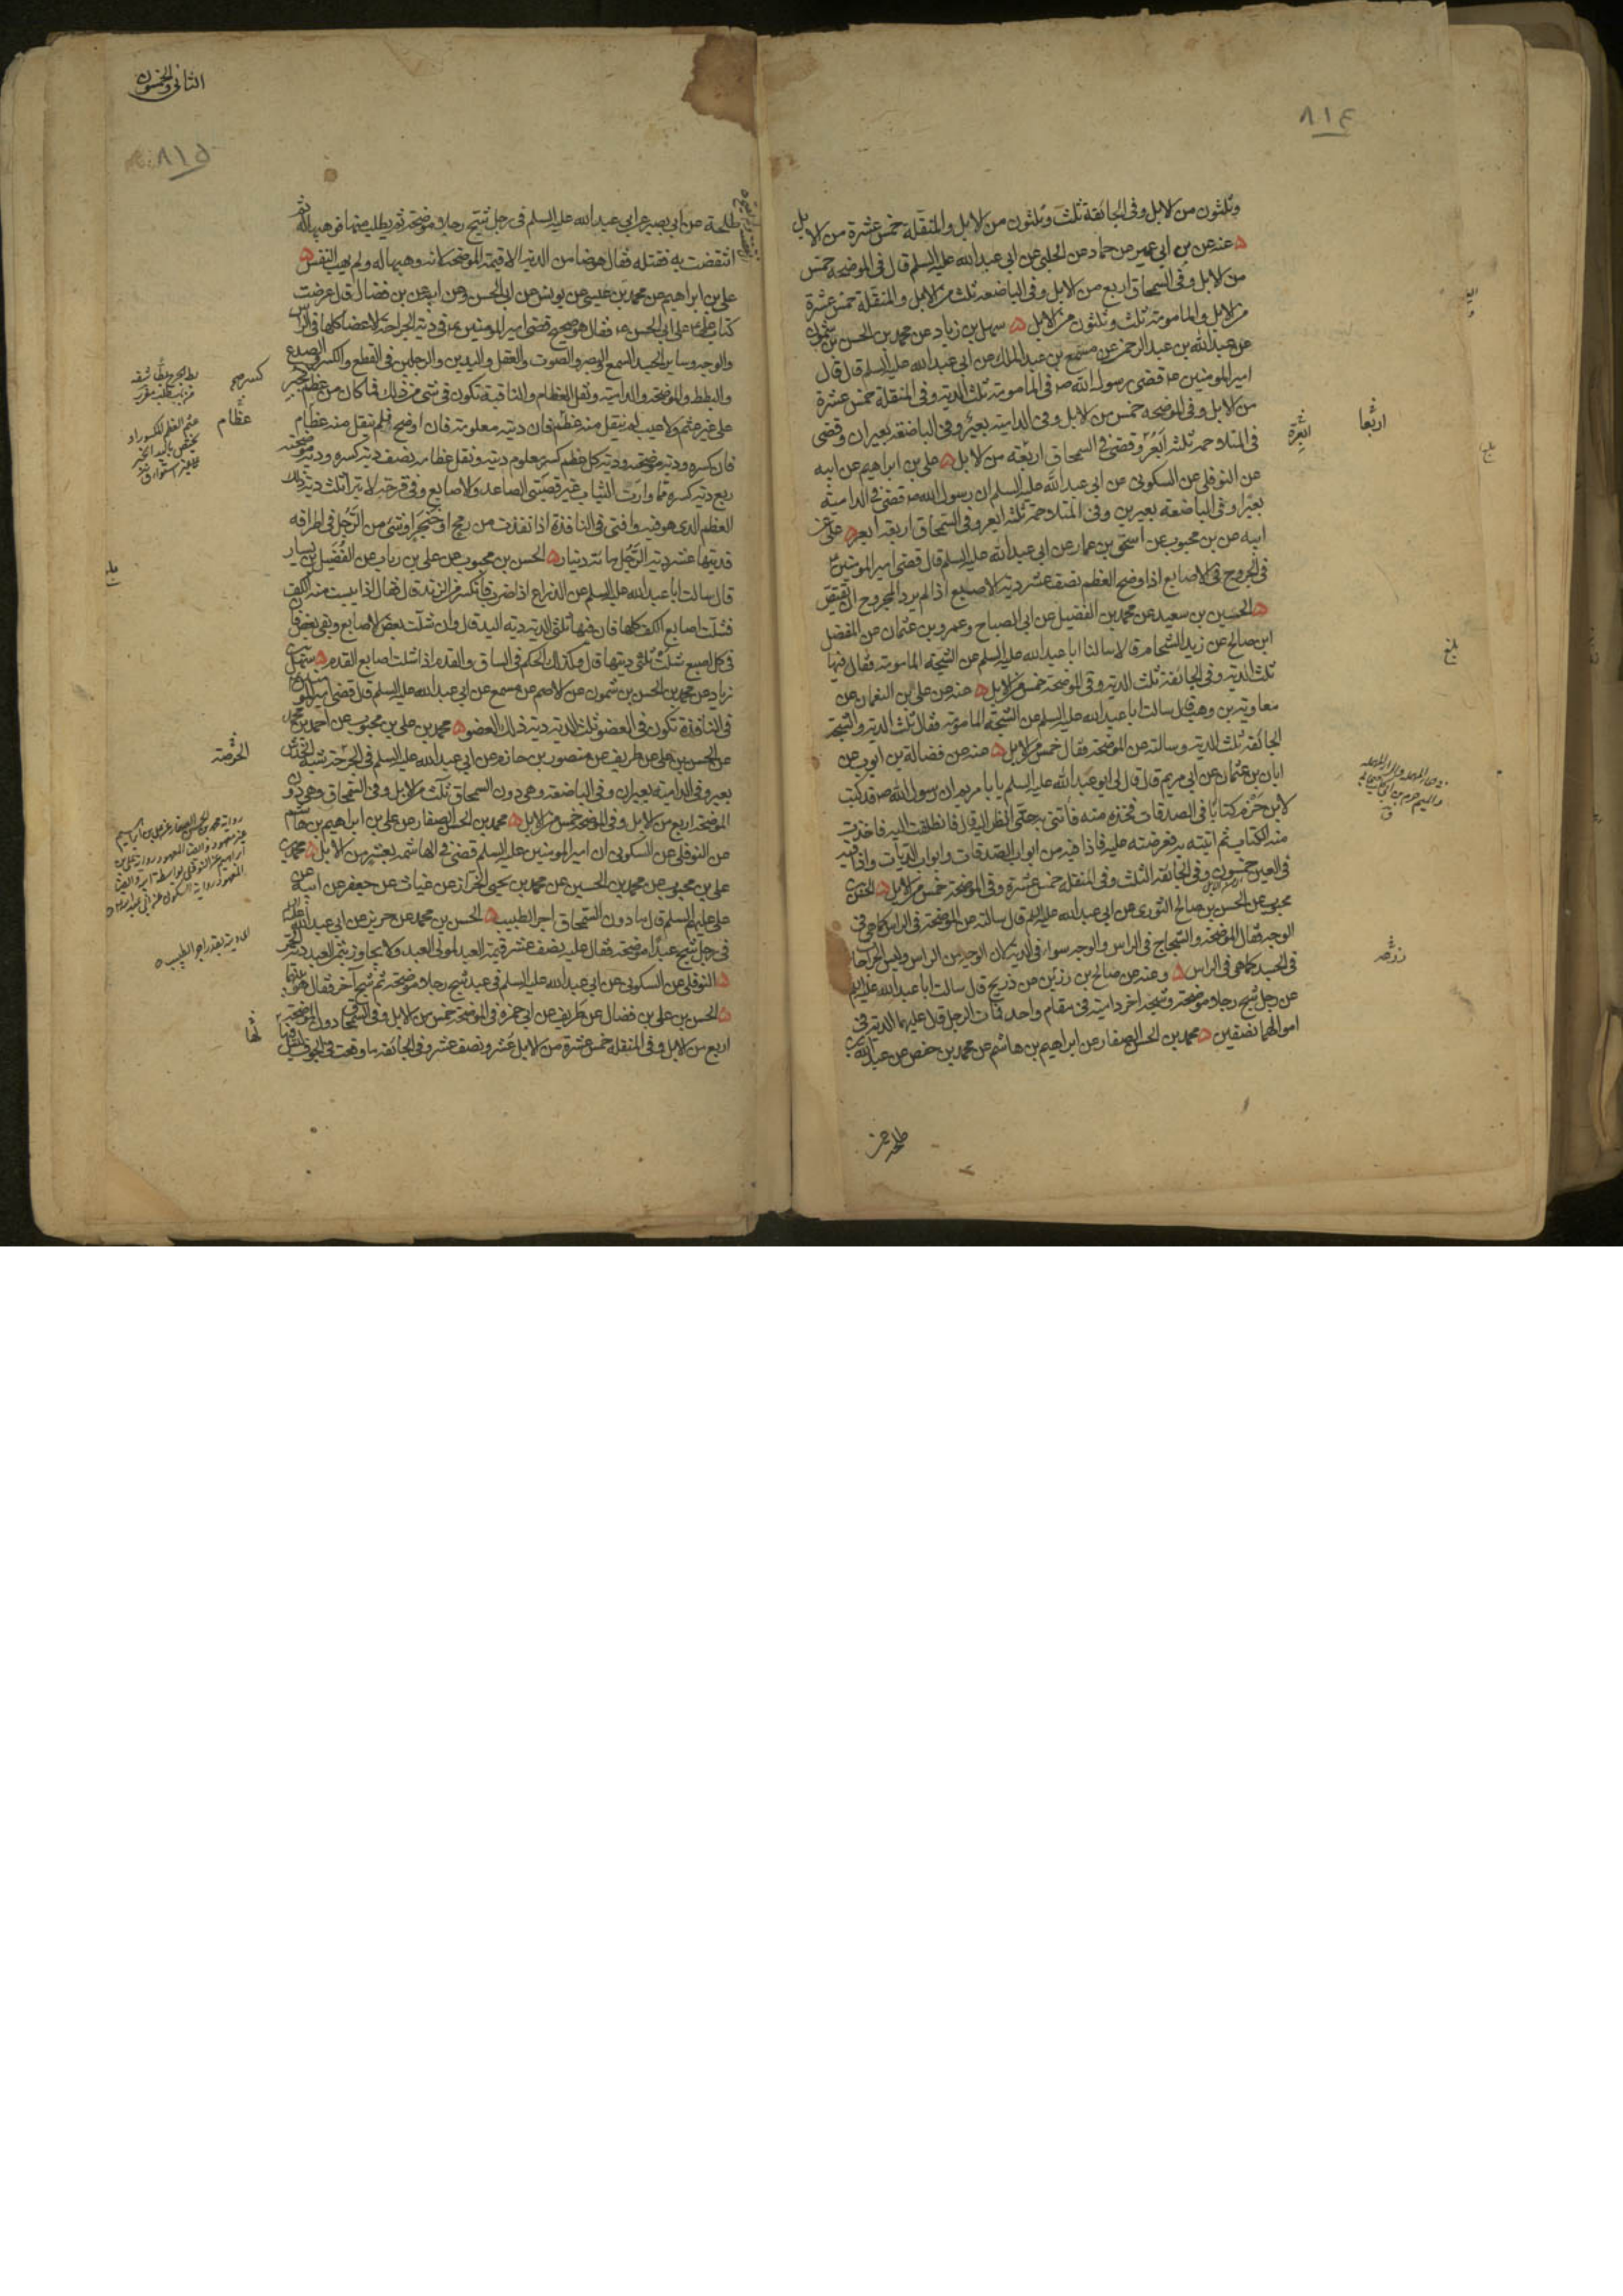 ٨١٤
وثلثون من الابل وفي الجائفة ثلث وثلثون من الابل والمنقلة خمس عشرة من الابل
عنه عن بن ابي عمير عن حماد عن الحلبي عن ابي عبد الله عليه السلم قال في الموضحة خمس
من الابل وفي السمحاق اربع من الابل وفي الباضعة ثلث من الابل والمنقلة خمس عشرة
من الابل والمامومة ثلث وثلثون من الابل سهل بن زياد عن محمد بن الحسن بن شمون
عن عبد الله بن عبد الرحمن عن مسمع بن عبد الملك عن ابي عبد الله عليه السلم قال قال
امير المومنين قضى رسول الله ص في المامومة ثلث الدية وفي المنقلة خمس عشرة
من الابل وفي الموضحة خمس من الابل وفي الدامية بعير وفي الباضعة بعيران وقضى
في المتلاحمة ثلثة ابعر وقضى في السمحاق اربعة من الابل علي بن ابراهيم عن ابيه
عن النوفلي عن السكوني عن ابي عبد الله عليه السلم ان رسول الله ص قضى في الدامية
بعيرا وفي الباضعة بعيرين وفي المتلاحمة ثلثة ابعر وفي السمحاق اربعة ابعر علي عن
ابيه عن بن محبوب عن اسحق بن عمار عن ابي عبد الله عليه السلم قال قضى امير المومنين
في الجروح في الاصابع اذا اوضح العظم نصف عشر دية الاصبع اذا لم يرد المجروح ان يقتص
الحسين بن سعيد عن محمد بن الفضيل عن ابي الصباح وعمرو بن عثمان عن المفضل
ابن صالح عن زيد الشحام قالا سالنا ابا عبد الله عليه السلم عن الشجة المامومة فقال فيها
ثلث الدية وفي الجائفة ثلث الدية وفي الموضحة خمس من الابل عنه عن علي بن النعمان عن
معاوية بن وهب قال سالت ابا عبد الله عليه السلم عن الشجة المامومة فقال ثلث الدية والشجة
الجائفة ثلث الدية وسالته عن الموضحة فقال خمس من الابل عنه عن فضالة بن ايوب عن
ابان بن عثمان عن ابي مريم قال قال لي ابو عبد الله عليه السلم يابا مريم ان رسول الله ص قد كتب
لابن حزم كتابا في الصدقات فخذه منه فأتني به حتى انظر اليه قال فانطلقت اليه فاخذت
منه الكتاب ثم اتيته به فعرضته عليه فاذا فيه من ابواب الصدقات وابواب الديات واذا فيه
في العين خمسون وفي الجائفة الثلث وفي المنقلة خمس عشرة وفي الموضحة خمس من الابل الحسن بن
محبوب عن الحسن بن صالح الثوري عن ابي عبد الله عليه السلم قال سالته عن الموضحة في الراس كما هي في
الوجه فقال الموضحة والشجاج في الراس والوجه سواء في الدية لان الوجه من الراس وليس الجراحات
في الجسد كما هي في الراس وعنه عن صالح بن رزين عن ذريح قال سالت ابا عبد الله عليه السلم
عن رجل شج رجلا موضحة وشجه اخر دامية في مقام واحد فمات الرجل قال عليهما الدية في
اموالهما نصفين محمد بن الحسن الصفار عن ابراهيم بن هاشم عن محمد بن حفص عن عبد الله بن
طلحة عن
بلغ
الثاني والخمسون
٨١٥
طلحة عن ابي بصير عن ابي عبد الله عليه السلم في رجل شج رجلا موضحة ثم يطلب فيها فوهبها له ثم
انتقضت به فقتلته فقال هو ضامن الدية الا قيمة الموضحة لانه وهبها له ولم يهب النفس
علي بن ابراهيم عن محمد بن عيسى عن يونس عن ابي الحسن وعن ابيه عن بن فضال قال عرضت
كتاب علي على ابي الحسن فقال هو صحيح قضى امير المومنين في دية الجراحة الاعضا كلها في الراس
والوجه وساير الجسد السمع والبصر والصوت والعقل واليدين والرجلين في القطع والكسر والصدع
والبطط والموضحة والدامية ونقل العظام والناقبة تكون في شي من ذلك فما كان من عظم كسر فجبر
على غير عثم ولا عيب لم ينقل منه عظم فان ديته معلومة فان اوضح فلم ينقل منه عظام
فان كسره ودية موضحته ودية كل عظم كسر معلوم ديته ونقل عظامه نصف دية كسره ودية موضحته
ربع دية كسره مما وارت الثياب غير قصبتي الساعد والاصابع وفي قرحة لا تبرا ثلث دية ذلك
العظم الذي هو فيه وافتى في النافذة اذا نفذت من رمح او خنجر او شي من الرجل في اطرافه
فديتها عشر دية الرجل مائة دينار الحسن بن محبوب عن علي بن رياب عن الفضيل بن يسار
قال سالت ابا عبد الله عليه السلم عن الذراع اذا ضرب فانكسر منه الزند قال فقال اذا يبست منه الكف
فشلت اصابع الكف كلها فان فيها ثلثي الدية دية اليد قال وان شلت بعض الاصابع وبقي بعض فان
في كل اصبع شلت ثلثي ديتها قال وكذلك الحكم في الساق والقدم اذا شلت اصابع القدم سهل بن
زياد عن محمد بن الحسن بن شمون عن الاصم عن مسمع عن ابي عبد الله عليه السلم قال قضى امير المومنين
في النافذة تكون في العضو ثلث الدية دية ذلك العضو محمد بن علي بن محبوب عن احمد بن محمد
عن الحسن بن علي عن ظريف عن منصور بن حازم عن ابي عبد الله عليه السلم في الحرصة شبه الخدش
بعير وفي الدامية بعيران وفي الباضعة وهي دون السمحاق ثلث من الابل وفي السمحاق وهي دون
الموضحة اربع من الابل وفي الموضحة خمس من الابل محمد بن الحسن الصفار عن علي بن ابراهيم بن هاشم
عن النوفلي عن السكوني ان امير المومنين عليه السلم قضى في الهاشمة بعشر من الابل محمد بن
علي بن محبوب عن محمد بن الحسين عن محمد بن يحيى الخزاز عن غياث عن جعفر عن ابيه عن
علي عليهم السلم قال ما دون السمحاق اجر الطبيب الحسن بن محمد عن حريز عن ابي عبد الله
في رجل شج عبدا موضحة فقال عليه نصف عشر قيمة العبد لمولى العبد ولا يجاوز بثمن العبد دية الحر
النوفلي عن السكوني عن ابي عبد الله عليه السلم في عبد شج رجلا موضحة ثم شج آخر فقال هو بينهما
الحسن بن علي بن فضال عن ظريف عن ابي حمزة في الموضحة خمس من الابل وفي السمحاق دون الموضحة
اربع من الابل وفي المنقلة خمس عشرة من الابل عشر ونصف عشر وفي الجائفة ما وقعت في الجوف ليس فيها
عظام
الحرصة